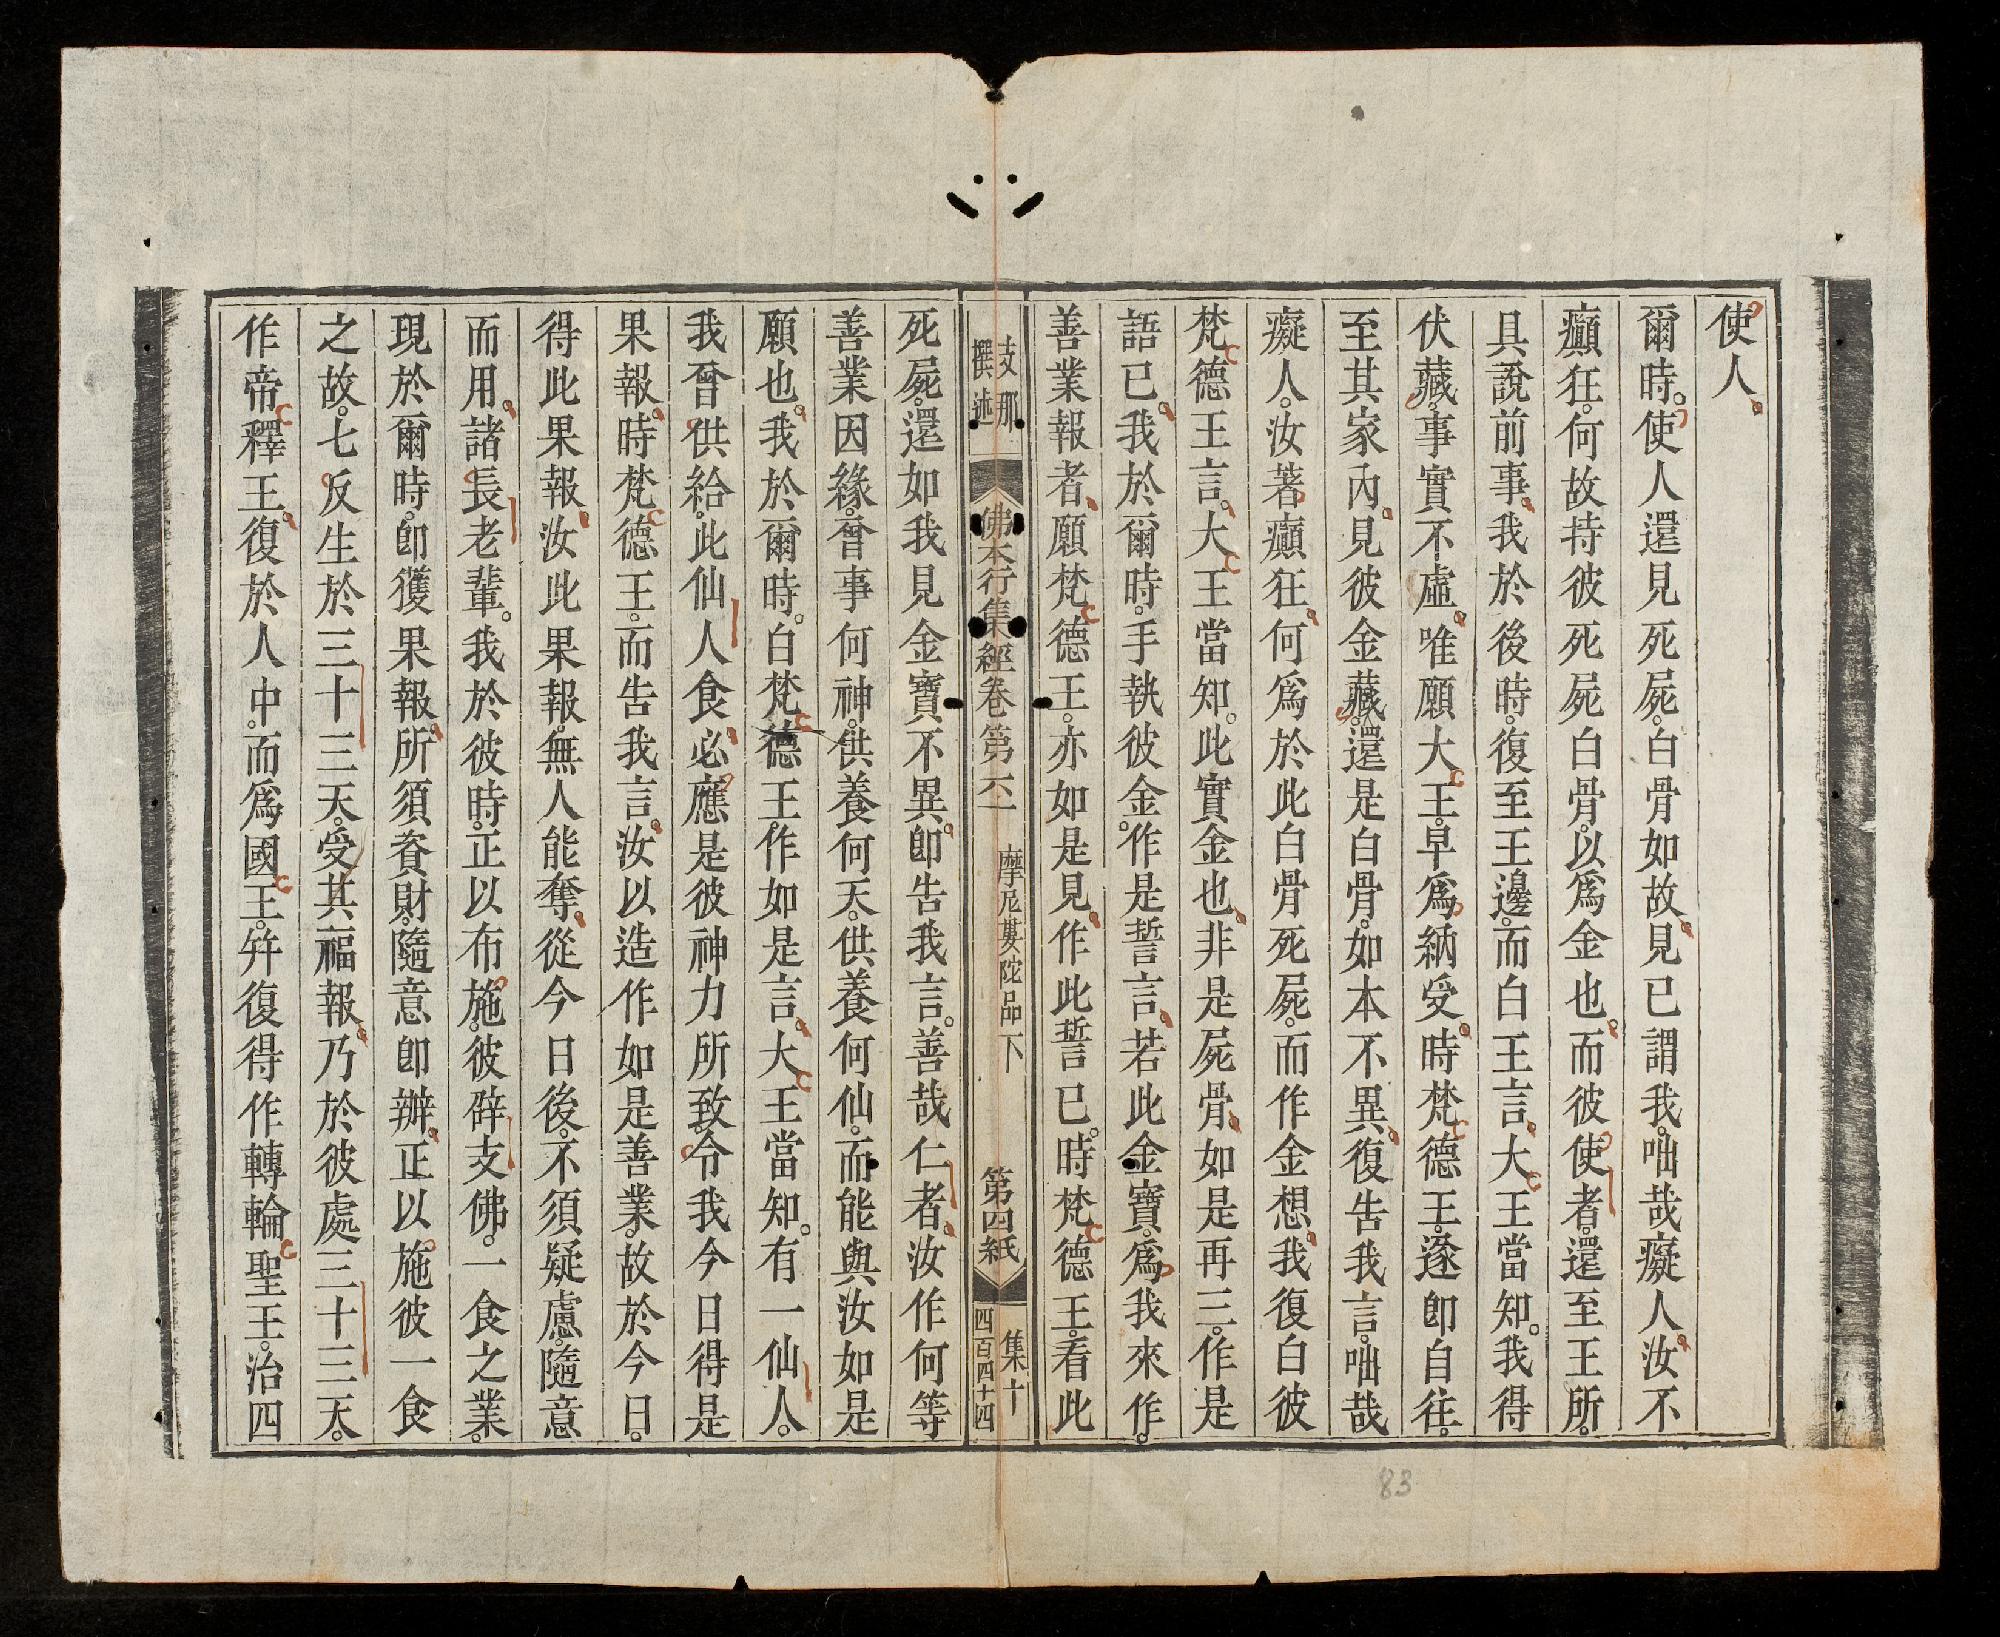 使人。
爾時。使人還見死屍。白骨如故。見已謂我。咄哉癡人。汝不
癲狂。何故持彼死屍白骨。以爲金也。而彼使者。還至王所。
具說前事。我於後時。復至王邊。而白王言。大王當知。我得
伏藏。事實不虛。唯願大王。早爲納受。時梵德王。遂卽自往。
至其家內。見彼金藏。還是白骨。如本不異。復告我言。咄哉
癡人。汝著癲狂。何爲於此白骨死屍。而作金想。我復白彼
梵德王言。大王當知。此實金也。非是屍骨。如是再三。作是
語已。我於爾時。手執彼金。作是誓言。若此金寶。爲我來作。
善業報者。願梵德王。亦如是見。作此誓已。時梵德王。看此
支那
撰述
佛本行集經卷第六一
摩尼婁陀品下
第四紙
集十
四百四十四
死屍。還如我見金寶不異。卽告我言。善哉仁者。汝作何等
善業因緣。曾事何神。供養何天。供養何仙。而能與汝如是
願也。我於爾時。白梵德王。作如是言。大王當知。有一仙人。
我曾供給。此仙人食。必應是彼神力所致。令我今日得是
果報。時梵德王。而告我言。汝以造作如是善業。故於今日。
得此果報。汝此果報。無人能奪。從今日後。不須疑慮。隨意
而用。諸長老輩。我於彼時。正以布施。彼辟支佛。一食之業。
現於爾時。卽獲果報。所須資財。隨意卽辦。正以施彼一食
之故。七反生於三十三天。受其福報。乃於彼處三十三天。
作帝釋王。復於人中。而爲國王。幷復得作轉輪聖王。治四
83